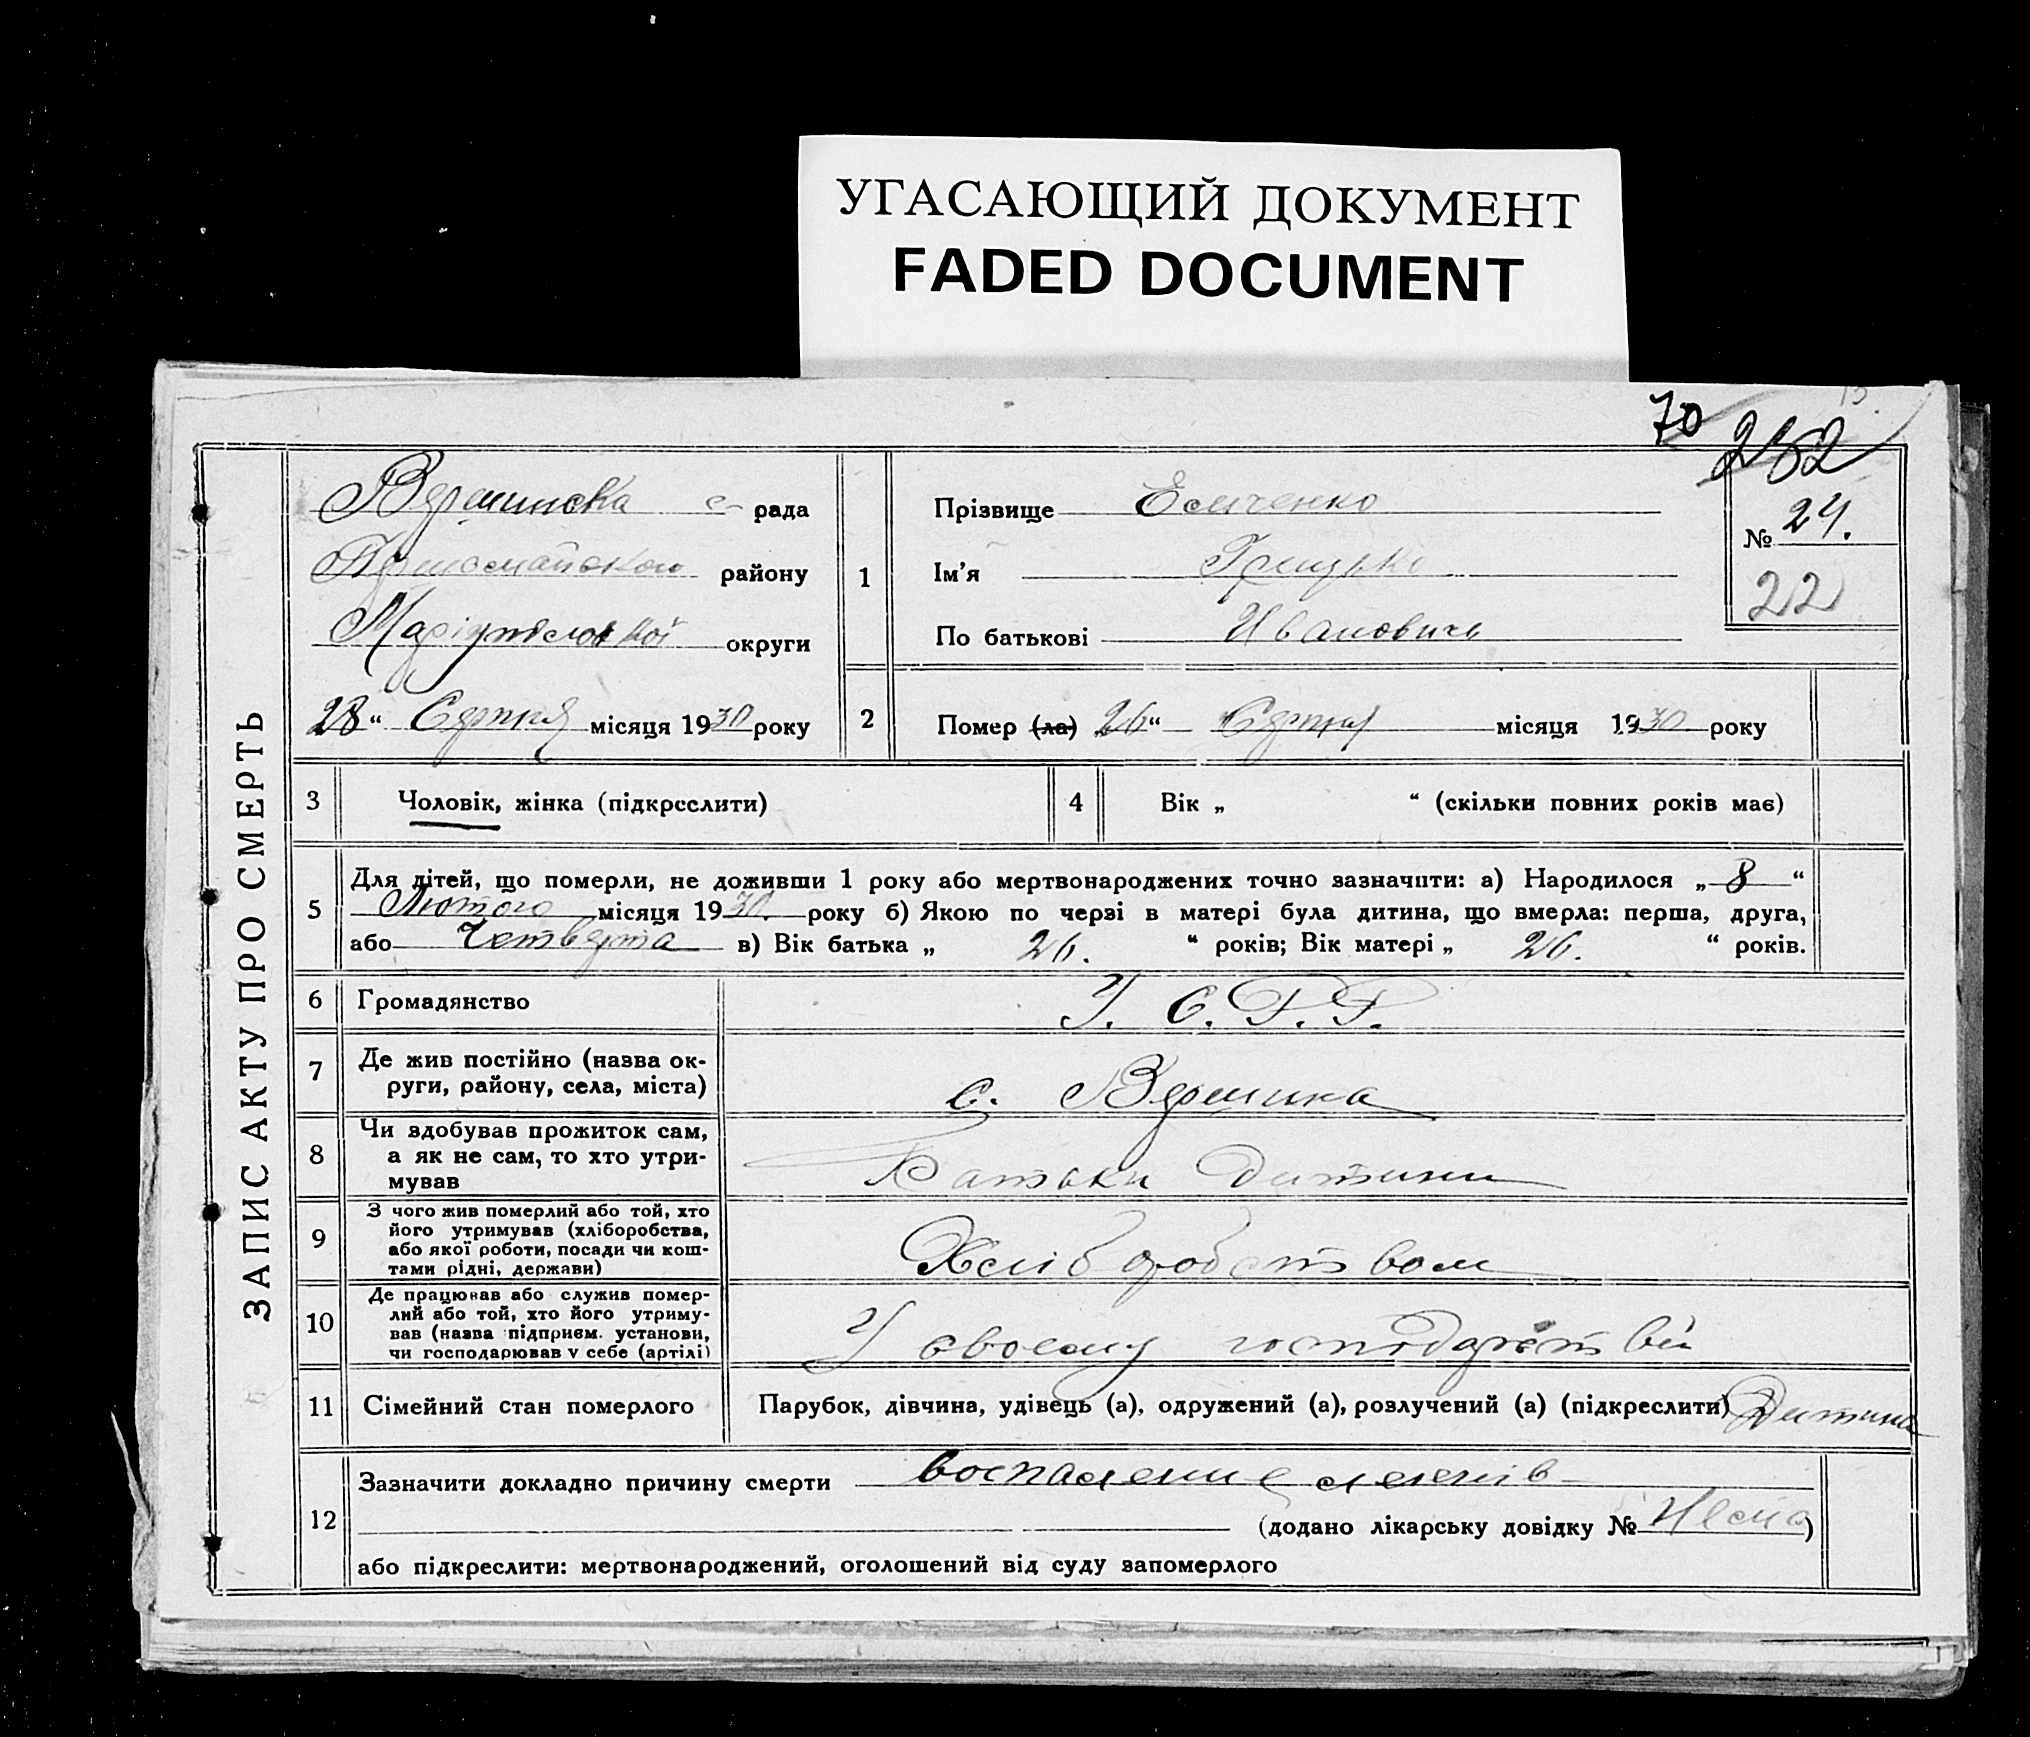 УГАСАЮЩИЙ ДОКУМЕНТ
FADED DOCUMENT
70 252
ЗАПИС АКТУ ПРО СМЕРТЬ
Вершинська с- рада
Першомайського району
Маріупільської округи
28 “ Серпня місяця 1930 року
1
Прізвище
Ім'я Грицько
По батькові Иванович
№ 24.
22
2 Помер (ла) 26 “ Серпня місяця 1930 року
3 Чоловік, жінка (підкреслити)
4 Вік „ “ (скільки повних років має)
5 Для дітей, що померли, не доживши 1 року або мертвонароджених точно зазначити: а) Народилося „ 8 “
Лютого місяця 1930. року б) Якою по черзі в матері була дитина, що вмерла: перша, друга,
або Четверта в) Вік батька „ 26. “ років; Вік матері „ 26. “ років.
6 Громадянство У. С. Р. Р.
7 Де жив постійно (назва ок-
руги, району, села, міста) с. Вершина
8 Чи здобував прожиток сам,
а як не сам, то хто утри-
мував Батьки Дитини
9 З чого жив померлий або той, хто
його утримував (хліборобства,
або якої роботи, посади чи кош-
тами рідні, держави) Хліборобством
10 Де працював або служив помер-
лий або той, хто його утриму-
вав (назва підприєм. установи,
чи господарював у себе (артілі) У своему господарстві
11 Сімейний стан померлого Парубок, дівчина, удівець (а), одружений (а), розлучений (а) (підкреслити) Дитина
12 Зазначити докладно причину смерти воспаление легенів
(додано лікарську довідку № Нема)
або підкреслити: мертвонароджений, оголошений від суду запомерлого